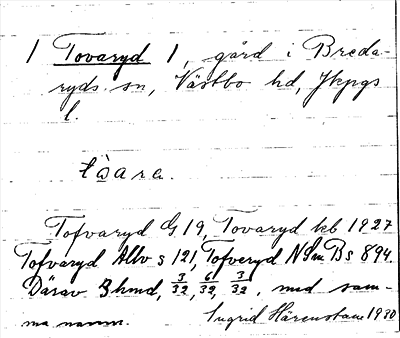 1 Tovaryd 1, gård i Breda-
ryds sn, Västbo hd, Jkpgs
l.
tòara.
Tofvaryd G 19, Tovaryd kb 1927
Tofvaryd Allv s 121, Tofveryd NSmB s 894.
Därav 3 hmd, 3/32, 6/32, 3/32, med sam-
ma namn.
Ingrid Härenstam 1930